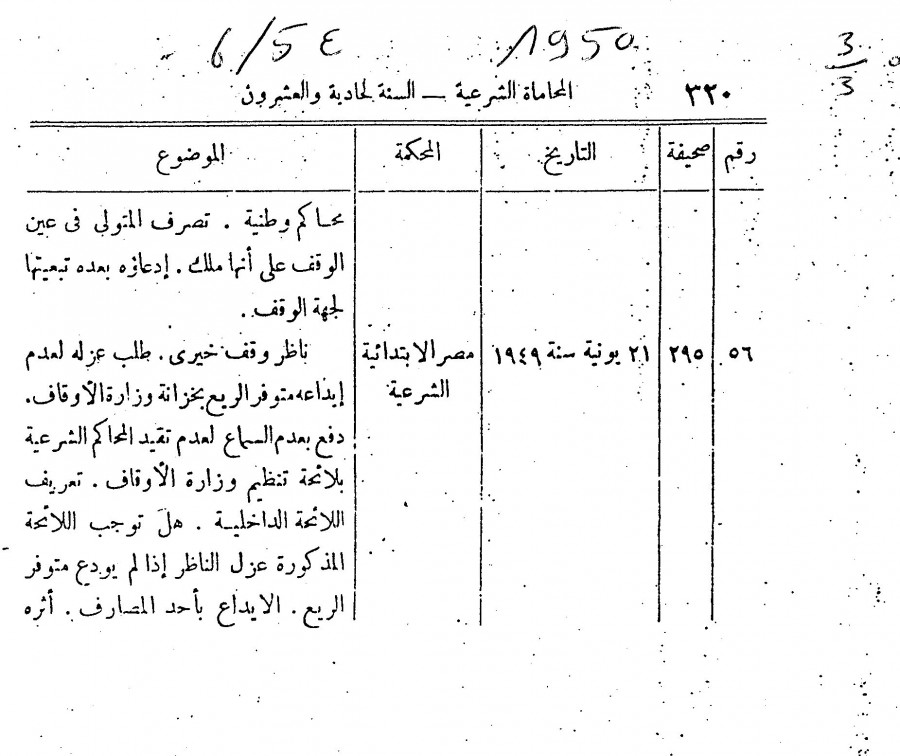 6/54 1950 3/3
٣٢٠ المحاماة الشرعية — السنة لحادية والعشرون
رقم صحيفة التاريخ المحكمة الموضوع
محاكم وطنية . تصرف المتولى فى عين
الوقف على أنها ملك . إدعاؤه بعده تبعيتها
لجهة الوقف .
٥٦ ٢٩٥ ٢١ يونية سنة ١٩٤٩ مصر الابتدائية ناظر وقف خيرى . طلب عزله لعدم
الشرعية إيداعه متوفر الريع بخزانة وزارة الأوقاف .
دفع بعدم السماع لعدم تقيد المحاكم الشرعية
بلائحة تنظيم وزارة الأوقاف . تعريف
اللائحة الداخلية . هل توجب اللائحة
المذكورة عزل الناظر إذا لم يودع متوفر
الريع . الايداع بأحد المصارف . أثره